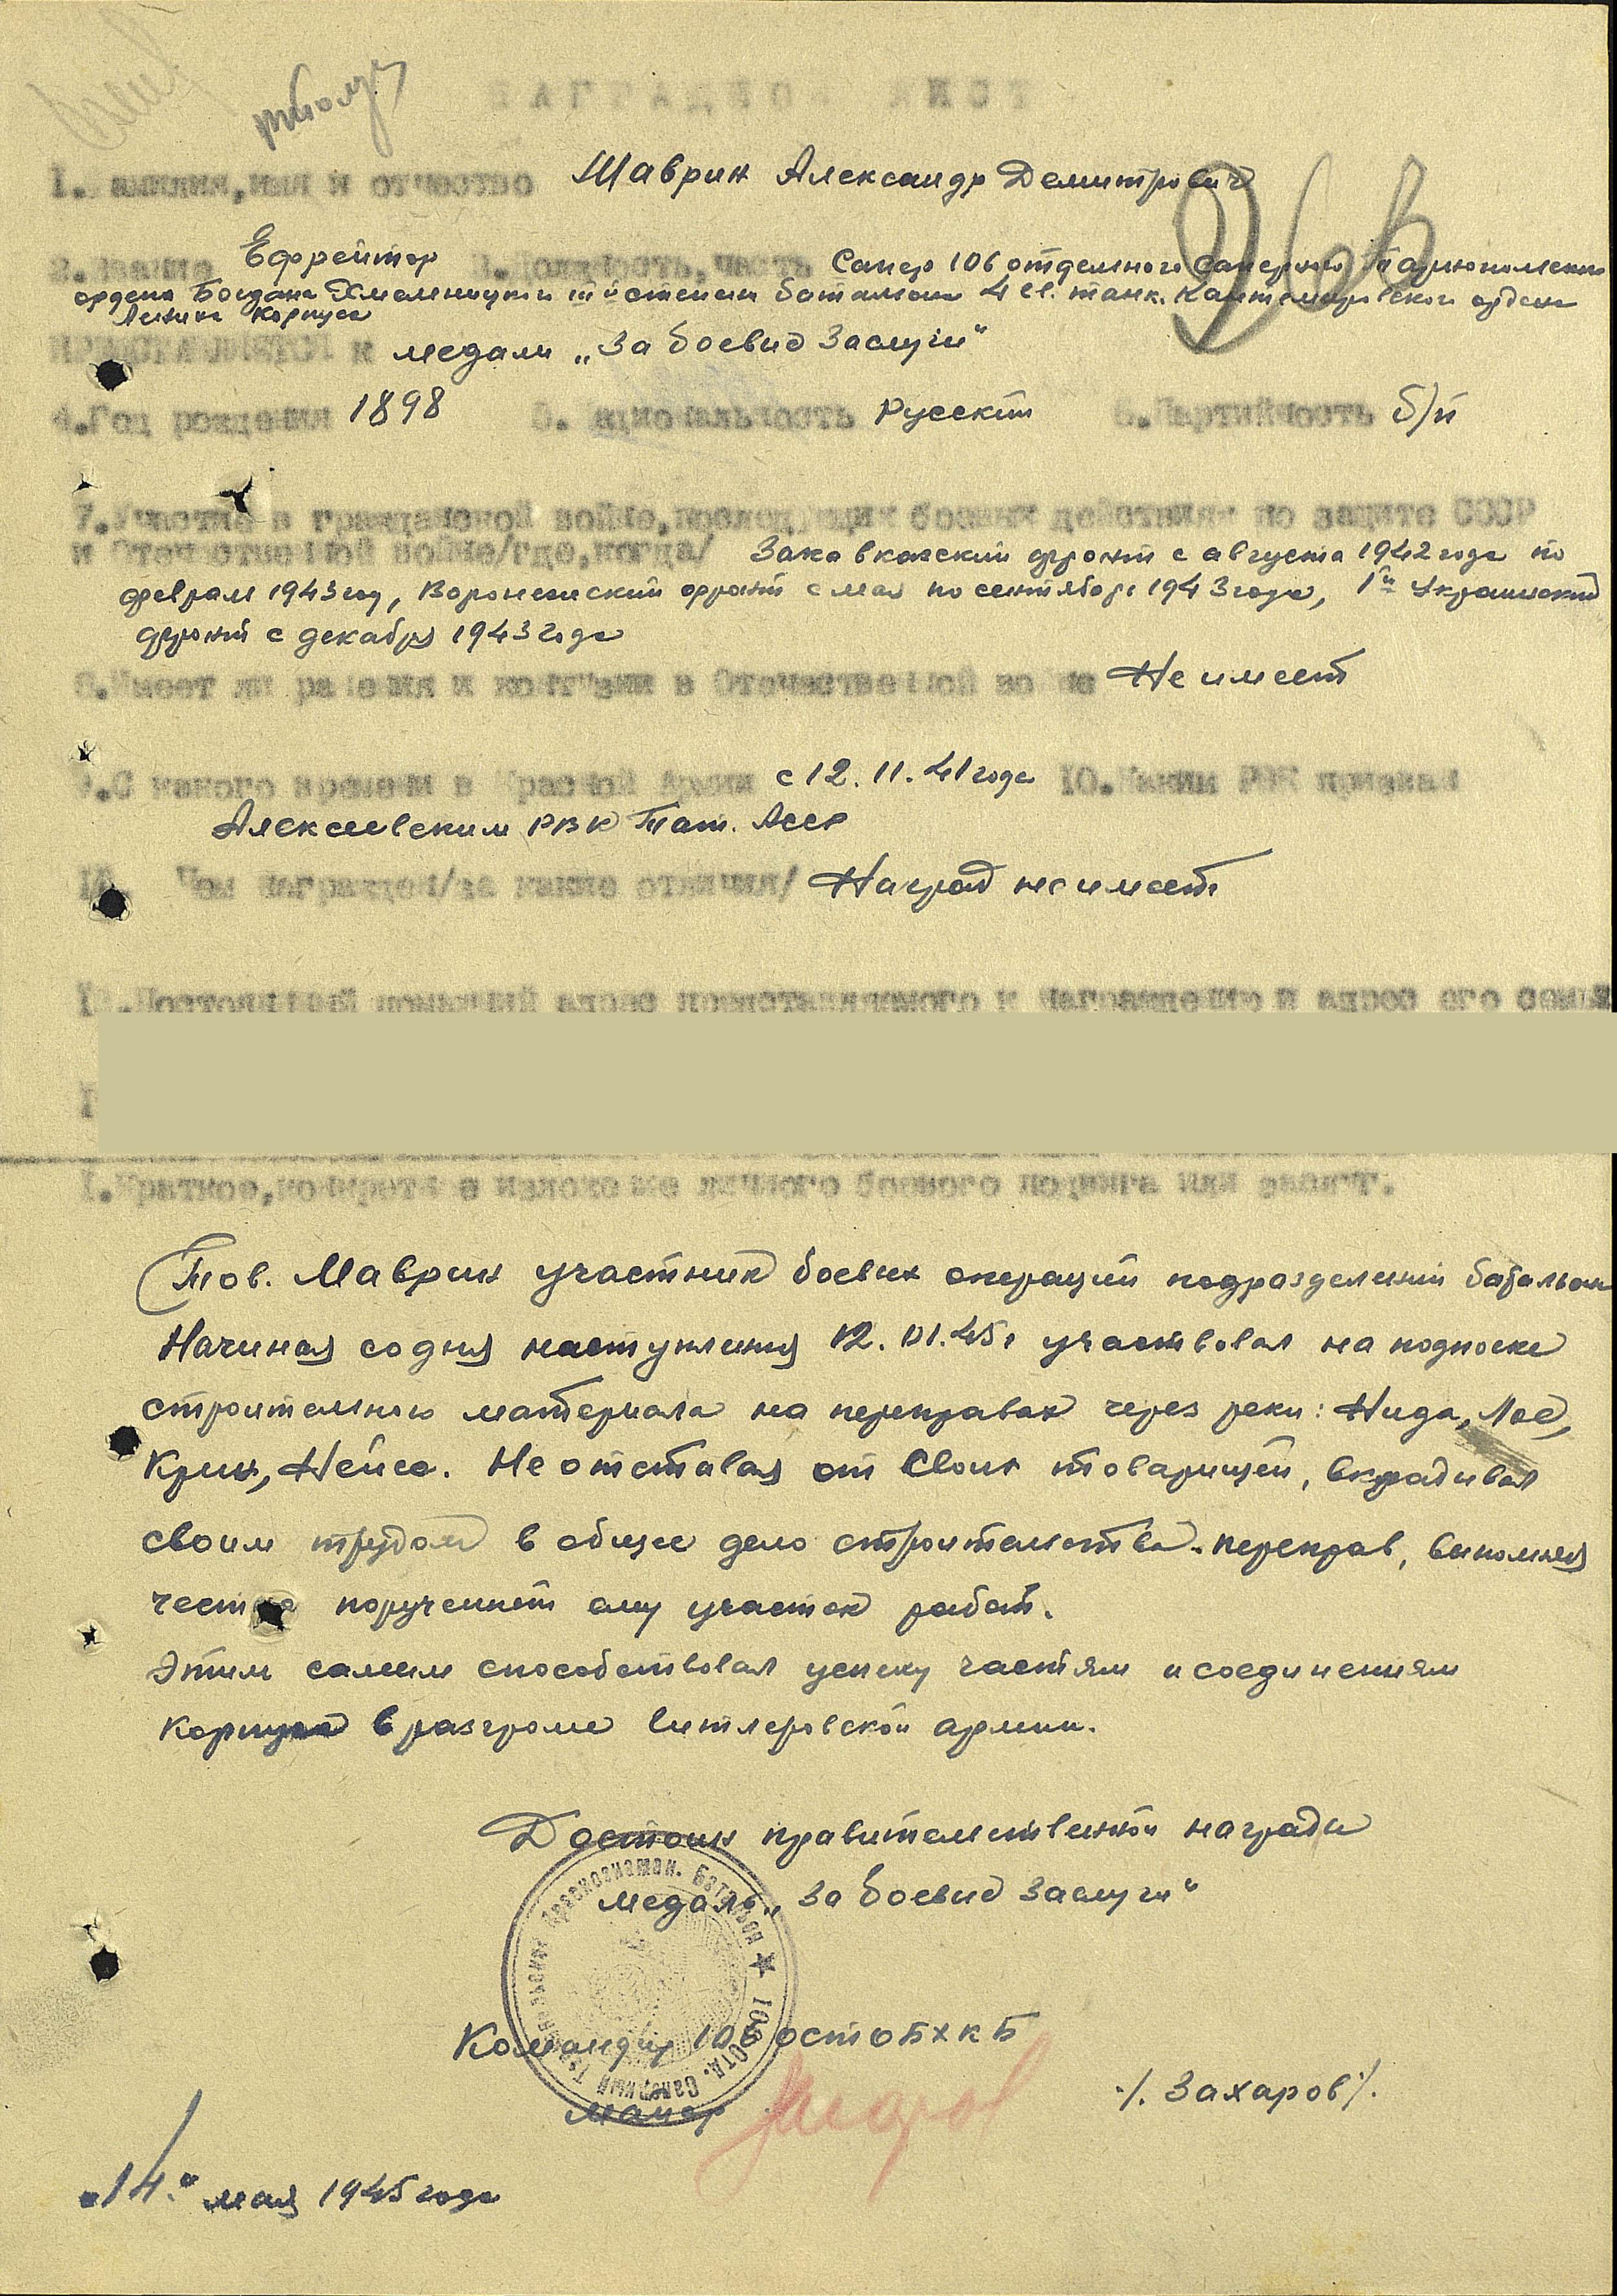 НАГРАДНОЙ ЛИСТ
1. Фамилия, имя и отчество Маврин Александр Демитрович
2. Звание Ефрейтор 3. Должность, часть Сапер 106 отдельного саперного Тарнопольского
ордена Богдана Хмельницкого степени батальона 4 гв. танк. Кантемировского ордена
Ленина корпуса
ПРЕДСТАВЛЯЕТСЯ к медали „За боевые заслуги"
4. Год рождения 1898 5. Национальность Русский 6. Партийность б/п
7. Участие в гражданской войне, последующих боевых действиях по защите СССР
и Отечественной войне /где, когда/ Закавказский фронт с августа 1942 года по
февраль 1943 год, Воронежский фронт с мая по сентябрь 1943 года, 1й Украинский
фронт с декабря 1943 года
8. Имеет ли ранения и контузии в Отечественной войне Не имеет
9. С какого времени в Красной Армии с 12.11.41 года 10. Каким РВК призван
Алексеевским РВК Тат. АССР
Чем награжден /за какие отличия/ Наград не имеет
Постоянный домашний адрес представляемого к награждению и адрес его семьи
1. Краткое, конкретное изложение личного боевого подвига или заслуг.
Тов. Маврин участник боевых операций подразделений батальон
Начиная со дня наступления 12.01.45г участвовал на подноске
строительного материала на переправах через реки: Нида,
Нейсе. Не отставая от своих товарищей, вкладывал
своим трудом в общее дело строительства переправ, выполняя
честно порученный ему участок работ.
Этим самым способствовал успеху частям и соединениям
корпуса в разгроме гитлеровской армии.
Достоин правительственной награды
медаль „За боевые заслуги"
Командир 106 ОСТОБХКБ
Майор /Захаров/.
„14." мая 1945 года